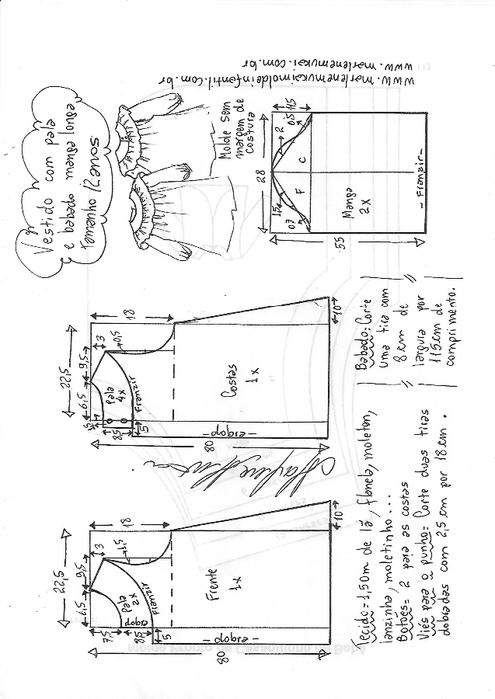 Vestido com pala
e babado manga longa
Tamanho 12 anos
www.marlenemukaimoldeinfantil.com.br
www.marlenemukai.com.br
Molde sem
margem de
costura
28
55
1,5
07
2
0,5
11,5
F
C
Manga
2x
- Franzir -
22,5
6,5
9,5
3
18
0,5
Pala
4x
Franzir
8,5
5
Costas
1x
- dobra -
80
10
22,5
6,5
9,5
3
18
1,5
Pala
2x
dobra
Franzir
7,5
8,5
5
Frente
1x
- dobra -
80
10
Tecido = 1,50m de lã, flanela, moleton,
lanzinha, moletinho...
Botões = 2 para as costas
Viés para o punho = Corte duas tiras
dobradas com 2,5 cm por 18 cm.
Babado: Corte
uma tira com
8 cm de
largura por
115 cm de
comprimento.